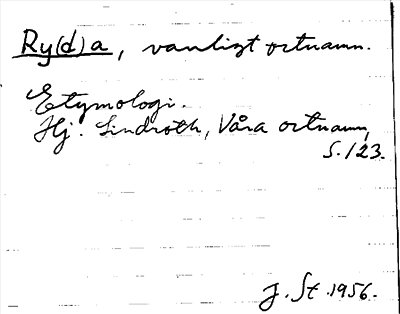 Ry(d)a, vanligt ortnamn.
Etymologi.
Hj. Lindroth, Våra ortnamn,
S. 123.
J. St. 1956.